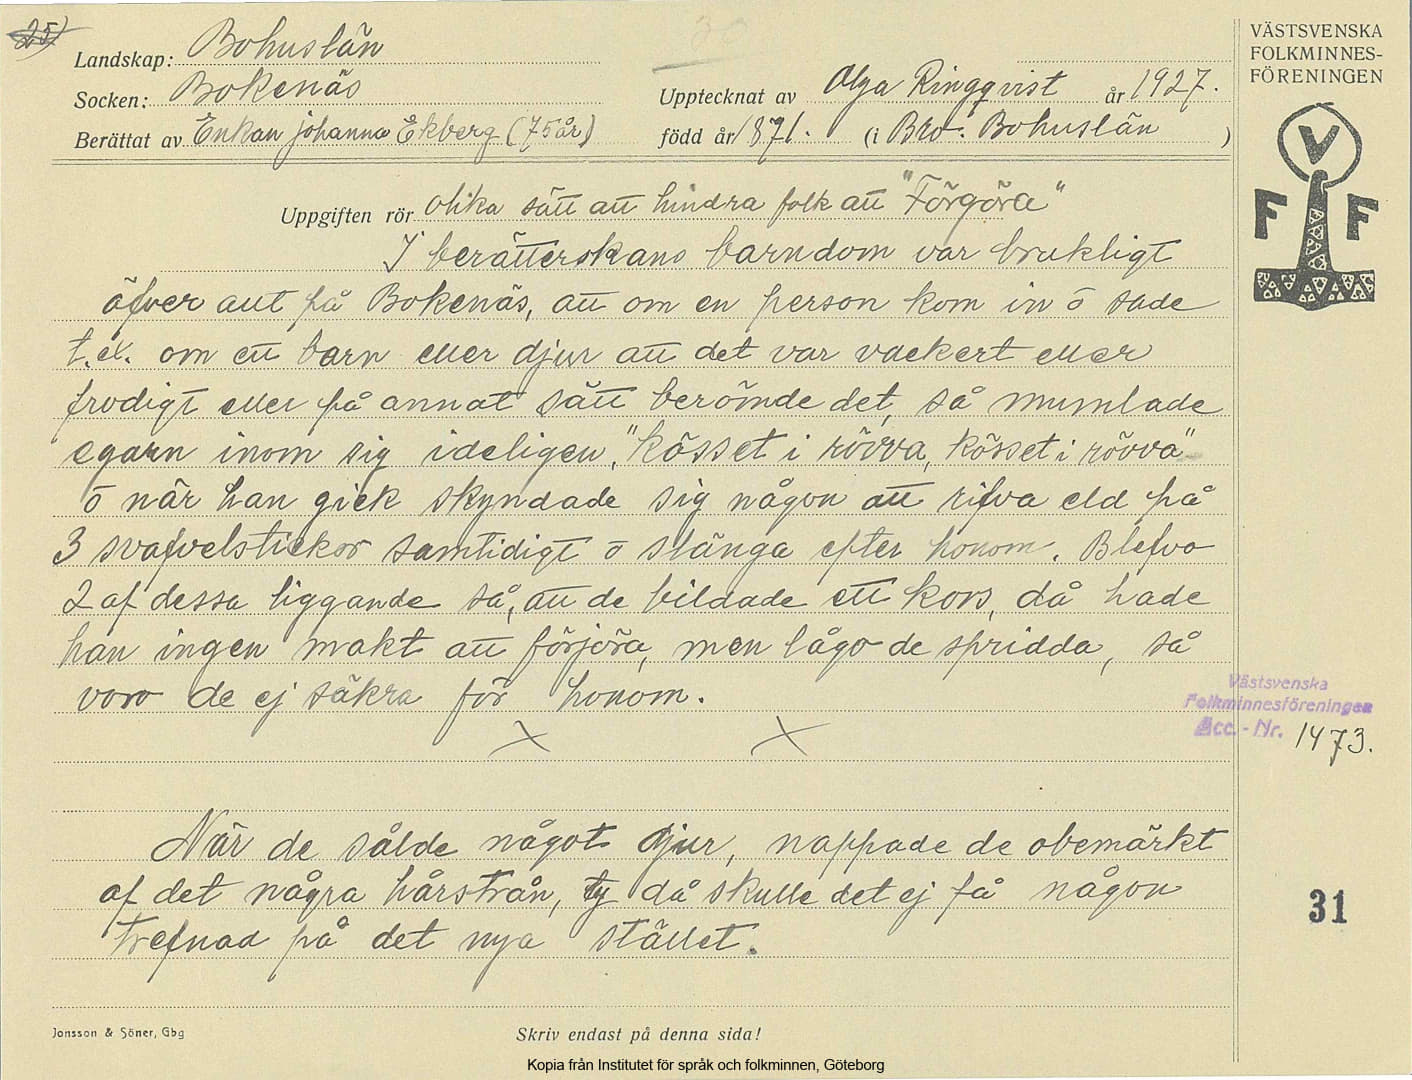 25)
Landskap: Bohuslän
Socken: Bokenäs
Berättat av Enkan Johanna Ekberg (75 år)
Upptecknat av Olga Ringqvist år 1927.
född år 1871. (i Bro. Bohuslän )
VÄSTSVENSKA
FOLKMINNES-
FÖRENINGEN
V
F F
Uppgiften rör olika sätt att hindra folk att "Förgöra"
I berätterskans barndom var brukligt
öfver aut på Bokenäs, att om en person kom in ō sade
t.ex. om ett barn eller djur att det var vackert eller
frodigt eller på annat sätt berömde det, så mumlade
egarn inom sig ideligen, "kösset i rövva, kösset i rövva"
ō när han gick skyndade sig någon att rifva eld på
3 svafvelstickor samtidigt ō slänga efter honom. Blefvo
2 af dessa liggande så, att de bildade ett kors, då hade
han ingen makt att förjöra, men lågo de spridda, så
voro de ej säkra för honom.
x x
Västsvenska
Folkminnesföreningen
Acc. - Nr. 1473.
När de sålde något djur, nappade de obemärkt
af det några hårstrån, ty då skulle det ej få någon
trefnad på det nya stället.
31
Jonsson & Söner, Gbg
Skriv endast på denna sida!
Kopia från Institutet för språk och folkminnen, Göteborg